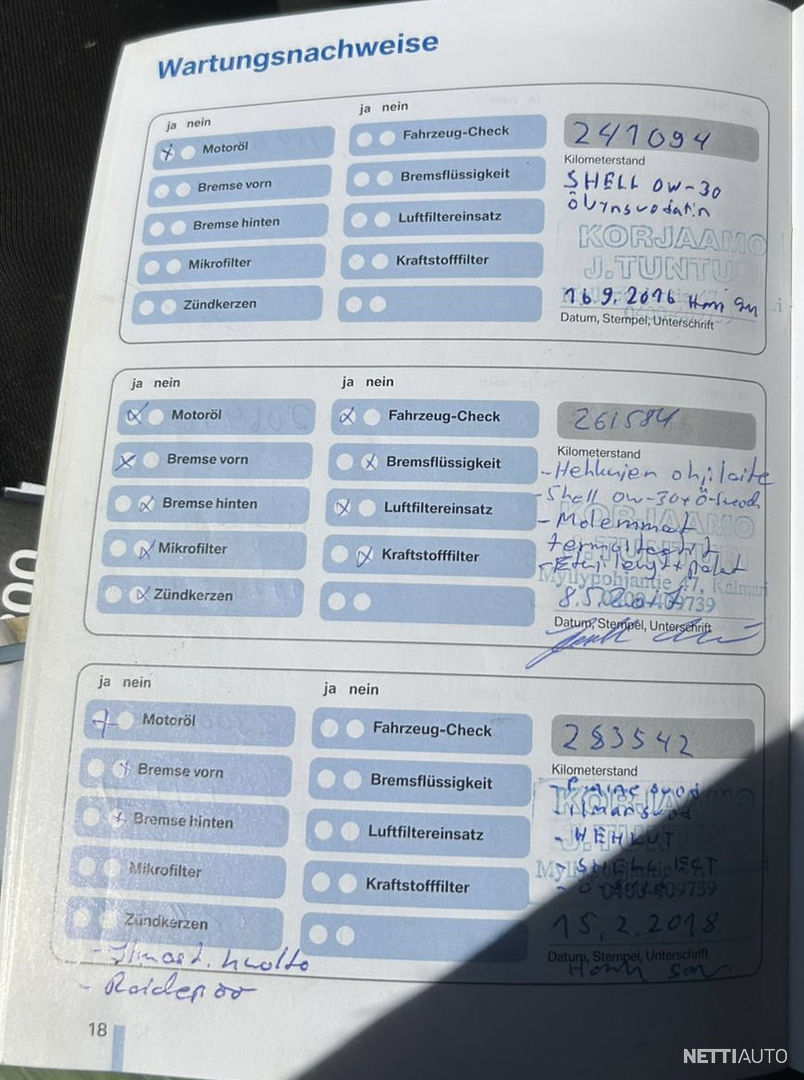 Wartungsnachweise
ja nein
ja nein
Motoröl
Bremse vorn
Bremse hinten
Mikrofilter
Zündkerzen
Fahrzeug-Check
Bremsflüssigkeit
Luftfiltereinsatz
Kraftstofffilter
241094
Kilometerstand
SHELL 0W-30
KORJAAMO
J.TUNTU
16.9.2016
Datum, Stempel, Unterschrift
ja nein
ja nein
Motoröl
Bremse vorn
Bremse hinten
Mikrofilter
Zündkerzen
Fahrzeug-Check
Bremsflüssigkeit
Luftfiltereinsatz
Kraftstofffilter
261584
Kilometerstand
- Hehkujen ohjlaite
- Shell 0W-30+
- Molemmat
Myllypohjantie 47, Kalmari
8.5.2017
Datum, Stempel, Unterschrift
ja nein
ja nein
Motoröl
Bremse vorn
Bremse hinten
Mikrofilter
Zündkerzen
Fahrzeug-Check
Bremsflüssigkeit
Luftfiltereinsatz
Kraftstofffilter
283542
Kilometerstand
KORJAAMO
- HEHKUT
- SHELL ECT
0400-409739
15.2.2018
Datum, Stempel, Unterschrift
- Ilmast. huolto
18
NETTIAUTO